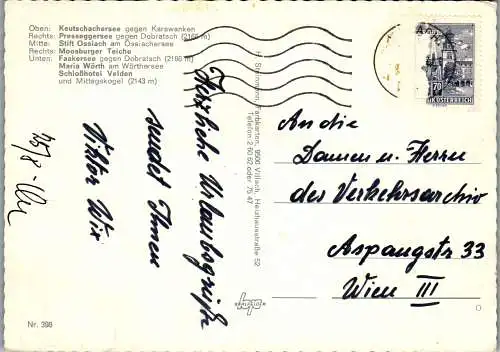 Oben: Keutschachersee gegen Karawanken
Rechts: Presseggersee gegen Dobratsch (2166 m)
Mitte: Stift Ossiach am Ossiachersee
Rechts: Moosburger Teiche
Unten: Faakersee gegen Dobratsch (2166 m)
Maria Wörth am Wörthersee
Schloßhotel Velden
und Mittagskogel (2143 m)
Herzliche Urlaubsgrüße
sendet Ihnen
Viktor Wix
9500 Villach, Heidenfeldstraße 52
Telefon 2 60 62 oder 75 47
70
An die
Damen u. Herren
des Verkehrsarchiv
Aspangstr 33
Wien III
Nr. 398